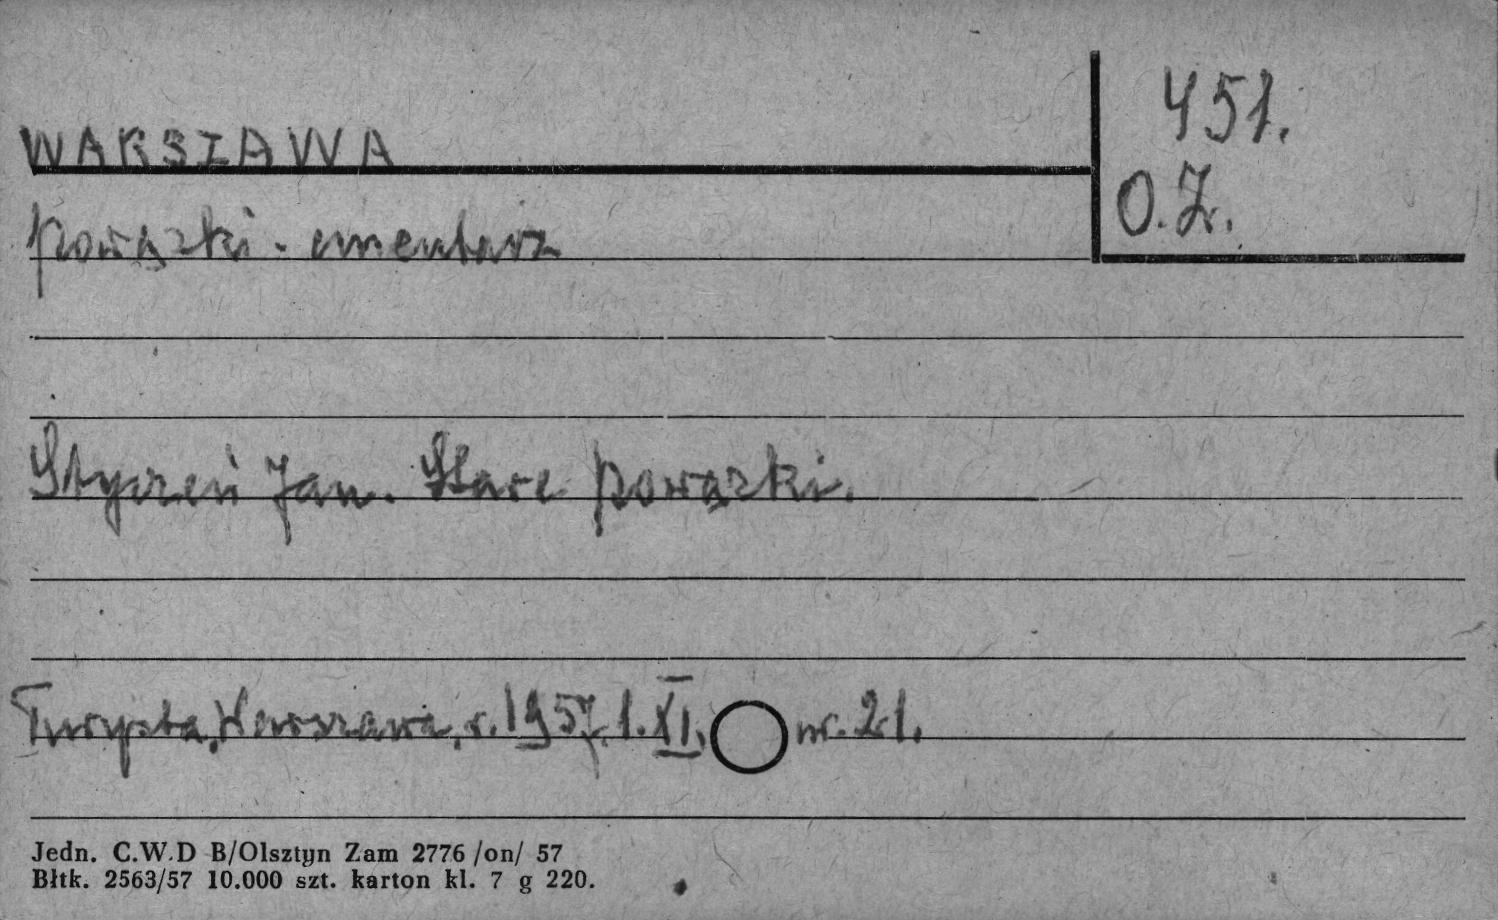 WARSZAWA
451.
O.Z.
Powązki - cmentarz
Styczeń Jan. Stare Powązki.
Turysta, Warszawa, r. 1957, 1. XI. nr. 21.
Jedn. C.W.D B/Olsztyn Zam 2776 /on/ 57
Błtk. 2563/57 10.000 szt. karton kl. 7 g 220.